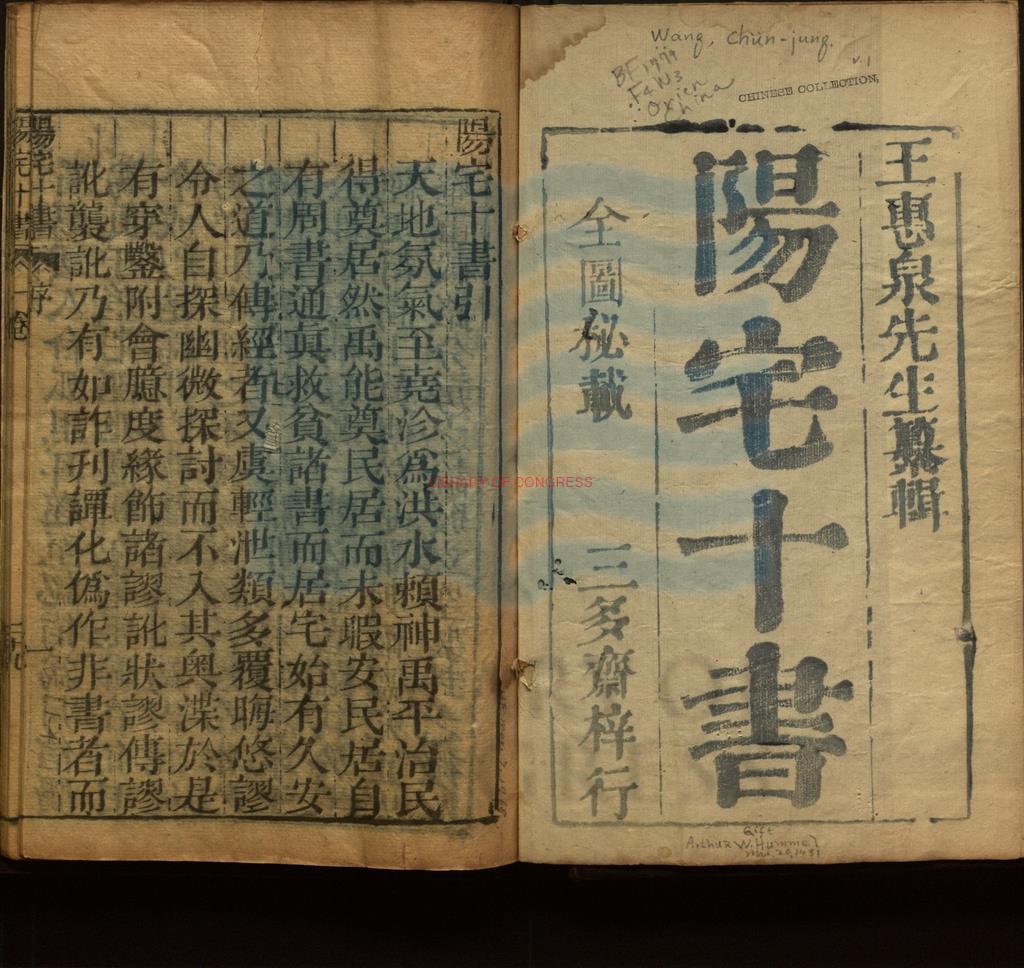 Wang, Chün-jung.
v.1
BF1779
.F4W3
Orien
China
CHINESE COLLECTION,
王惠泉先生纂輯
陽宅十書
全圖秘載
三多齋梓行
Gift
Arthur W. Hummel
LIBRARY OF CONGRESS
陽宅十書引
天地氛氣至堯沴為洪水賴神禹平治民
得奠居然禹能奠民居而未暇安民居自
有周書通真救貧諸書而居宅始有久安
之道乃傳經者又虞輕泄類多覆晦悠謬
令人自探幽微探討而不入其奥渫於是
有穿鑿附會臆度緣飾諸謬訛狀謬傳謬
訛襲訛乃有如詐刋譚化僞作非書者而
陽宅十書
序
一
陽宅十書
一卷